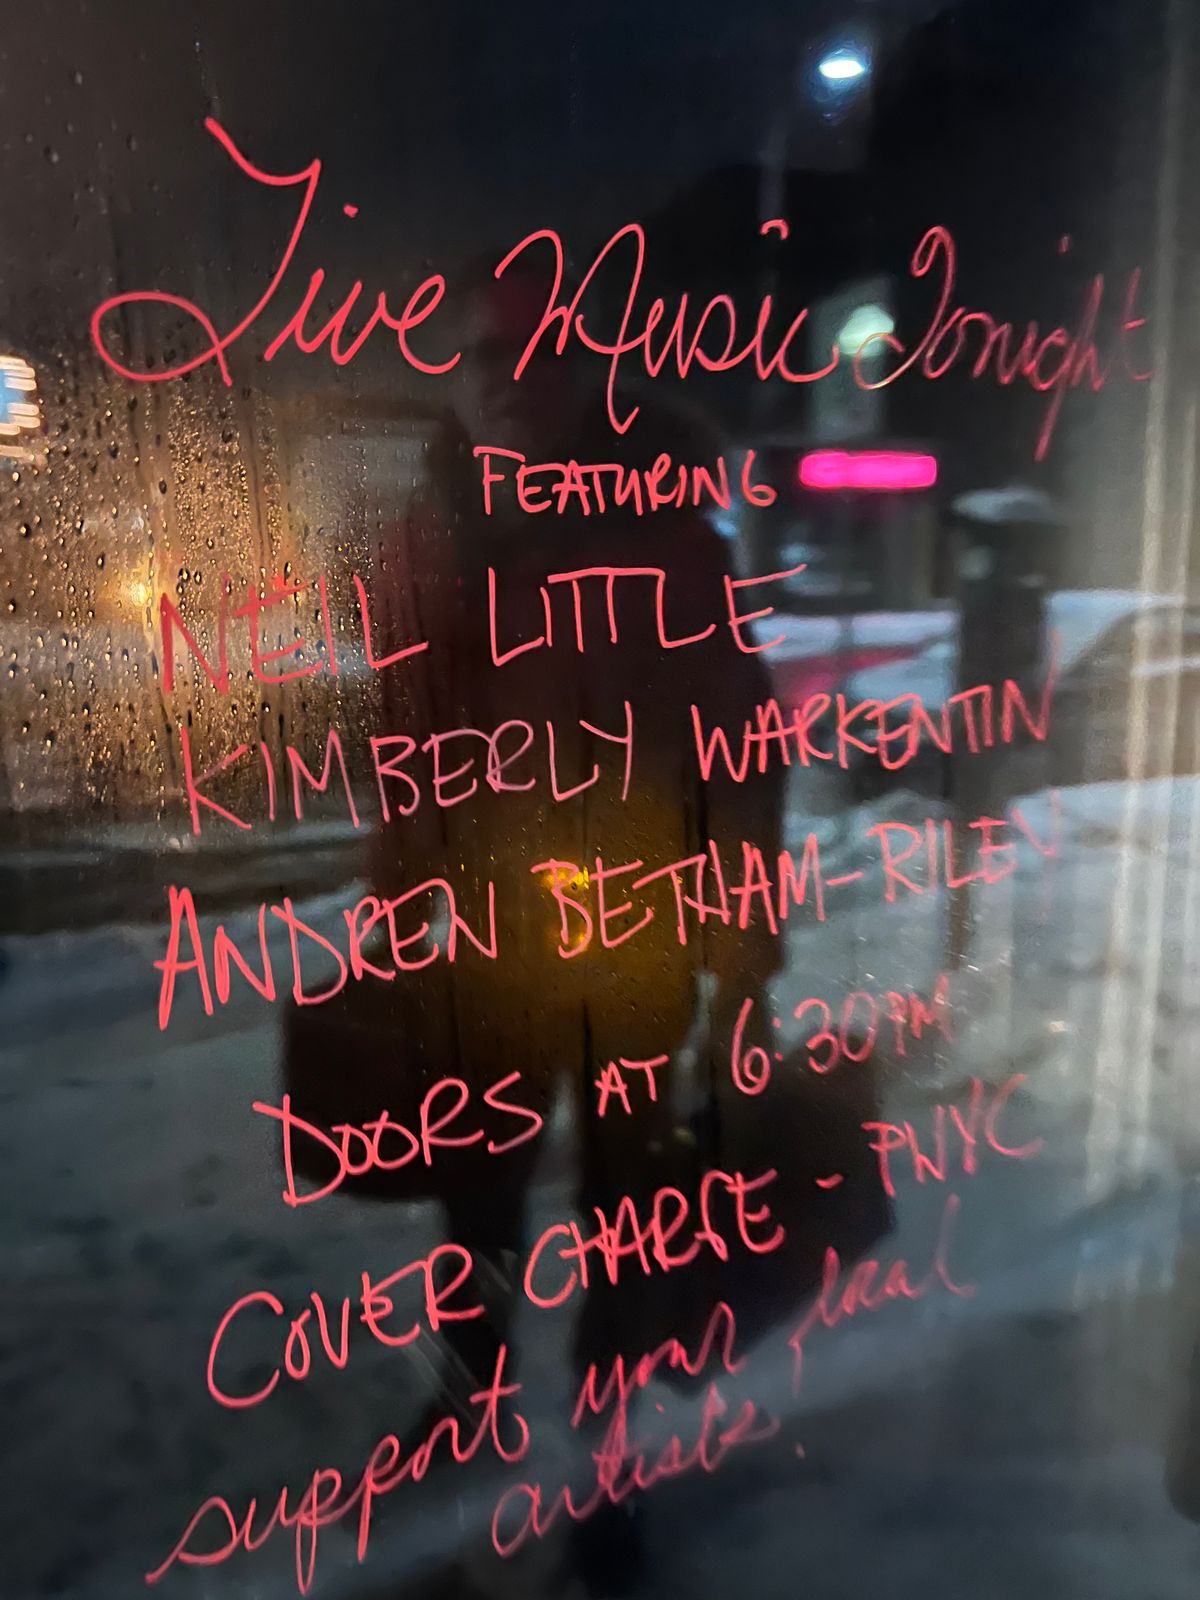 Live Music Tonight
FEATURING
NEIL LITTLE
KIMBERLY WARKENTIN
ANDREN BETHAM-RILEY
DOORS AT 6:30PM
COVER CHARGE - PWYC
support your local
artists.